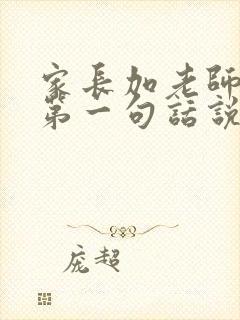 家長加老師
第一句話説
庞超